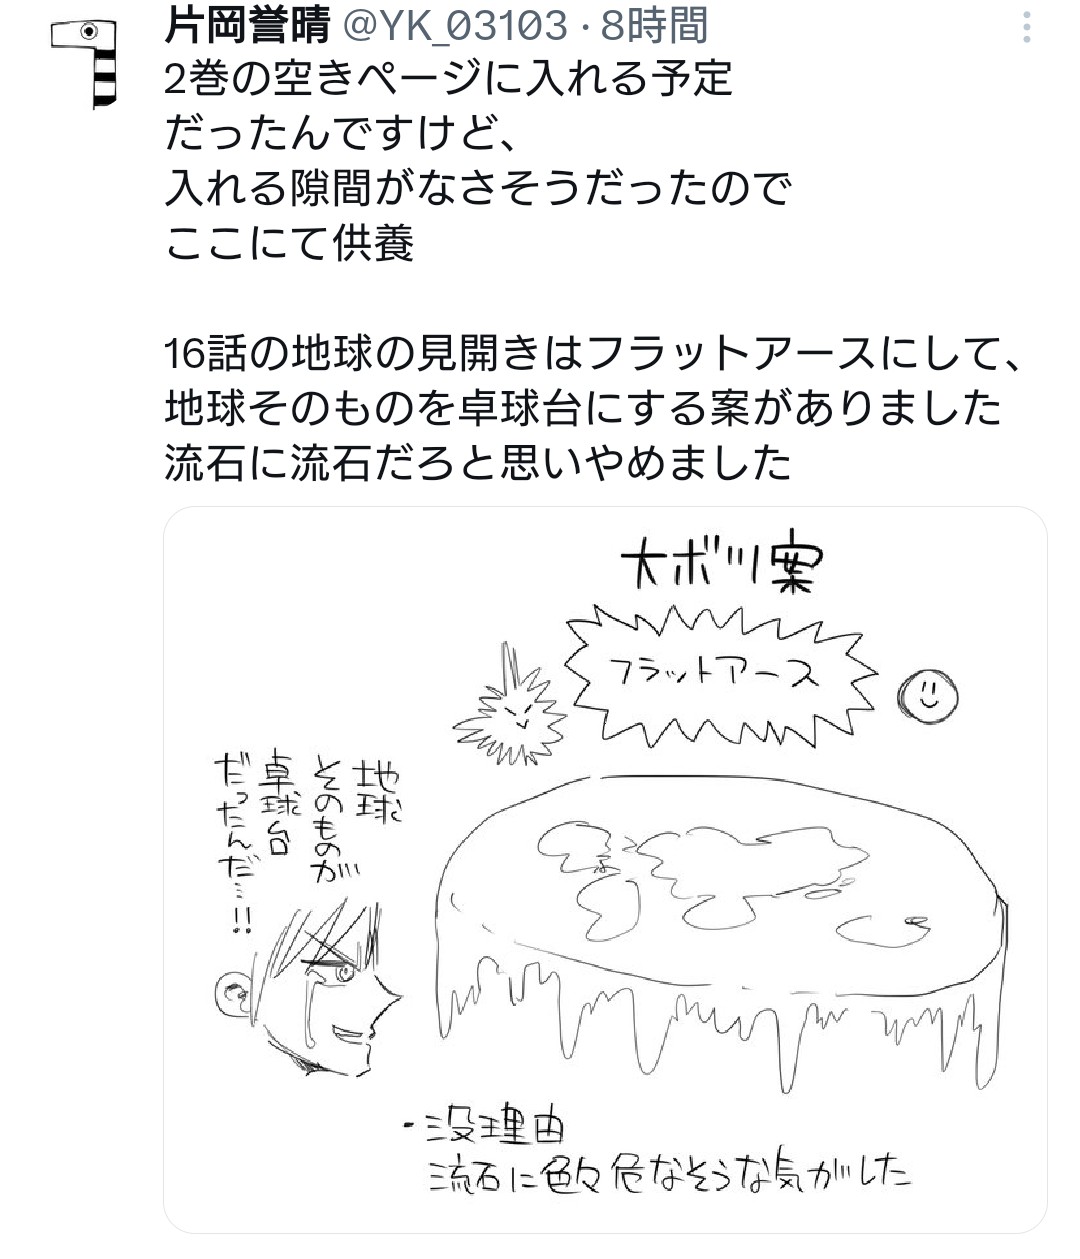 片岡誉晴 @YK_03103 · 8時間
2巻の空きページに入れる予定
だったんですけど、
入れる隙間がなさそうだったので
ここにて供養
16話の地球の見開きはフラットアースにして、
地球そのものを卓球台にする案がありました
流石に流石だろと思いやめました
大ボツ案
フラットアース
地球
そのものが
卓球台
だったんだ…!!
・没理由
流石に色々危なそうな気がした